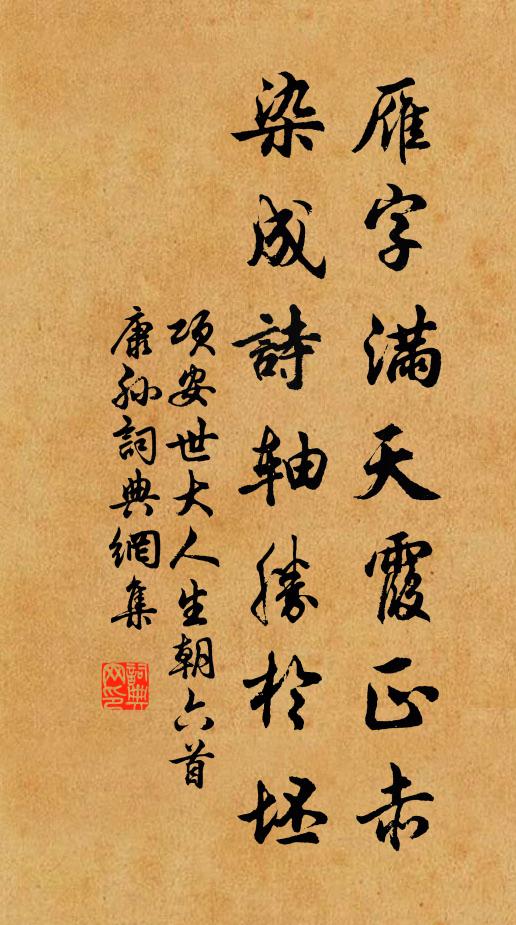 雁字满天霞正赤
染成詩轴勝於坯
项安世大人生朝六首
康弥詞典網集
詞典网印